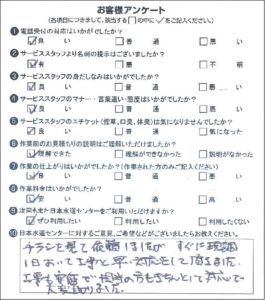 お客様アンケート
(各項目につきまして、該当する□の中に✓をご記入ください。)
❶電話受付の対応はいかがでしたか?
☑良い □普通 □悪い
❷サービススタッフより名刺の提示はございましたか?
☑有 □無 □不明
❸サービススタッフの身だしなみはいかがでしたか?
☑良い □普通 □悪い
❹サービススタッフのマナー・言葉遣い・態度はいかがでしたか?
☑良い □普通 □悪い
❺サービススタッフのエチケット(煙草、口臭、体臭)は気になりませんでしたか?
☑良い □普通 □気になった
❻作業前のお見積もりの説明はご理解いただけましたか?
☑理解できた □理解ができなかった □説明がなかった
❼作業の仕上がりはいかがでしたか?(作業された方のみご記入ください)
☑良い □普通 □悪い
❽作業料金はいかがでしたか?
☑安い □普通 □高い
❾次回も日本水道センターをご利用いただけますか?
☑ぜひ利用したい □利用したい □利用したくない
❿日本水道センターに対するご意見、ご希望などがございましたらお教えください。
チラシを見て依頼
1日おいて工事と早い対応をして頂きました。
大変助かりました。